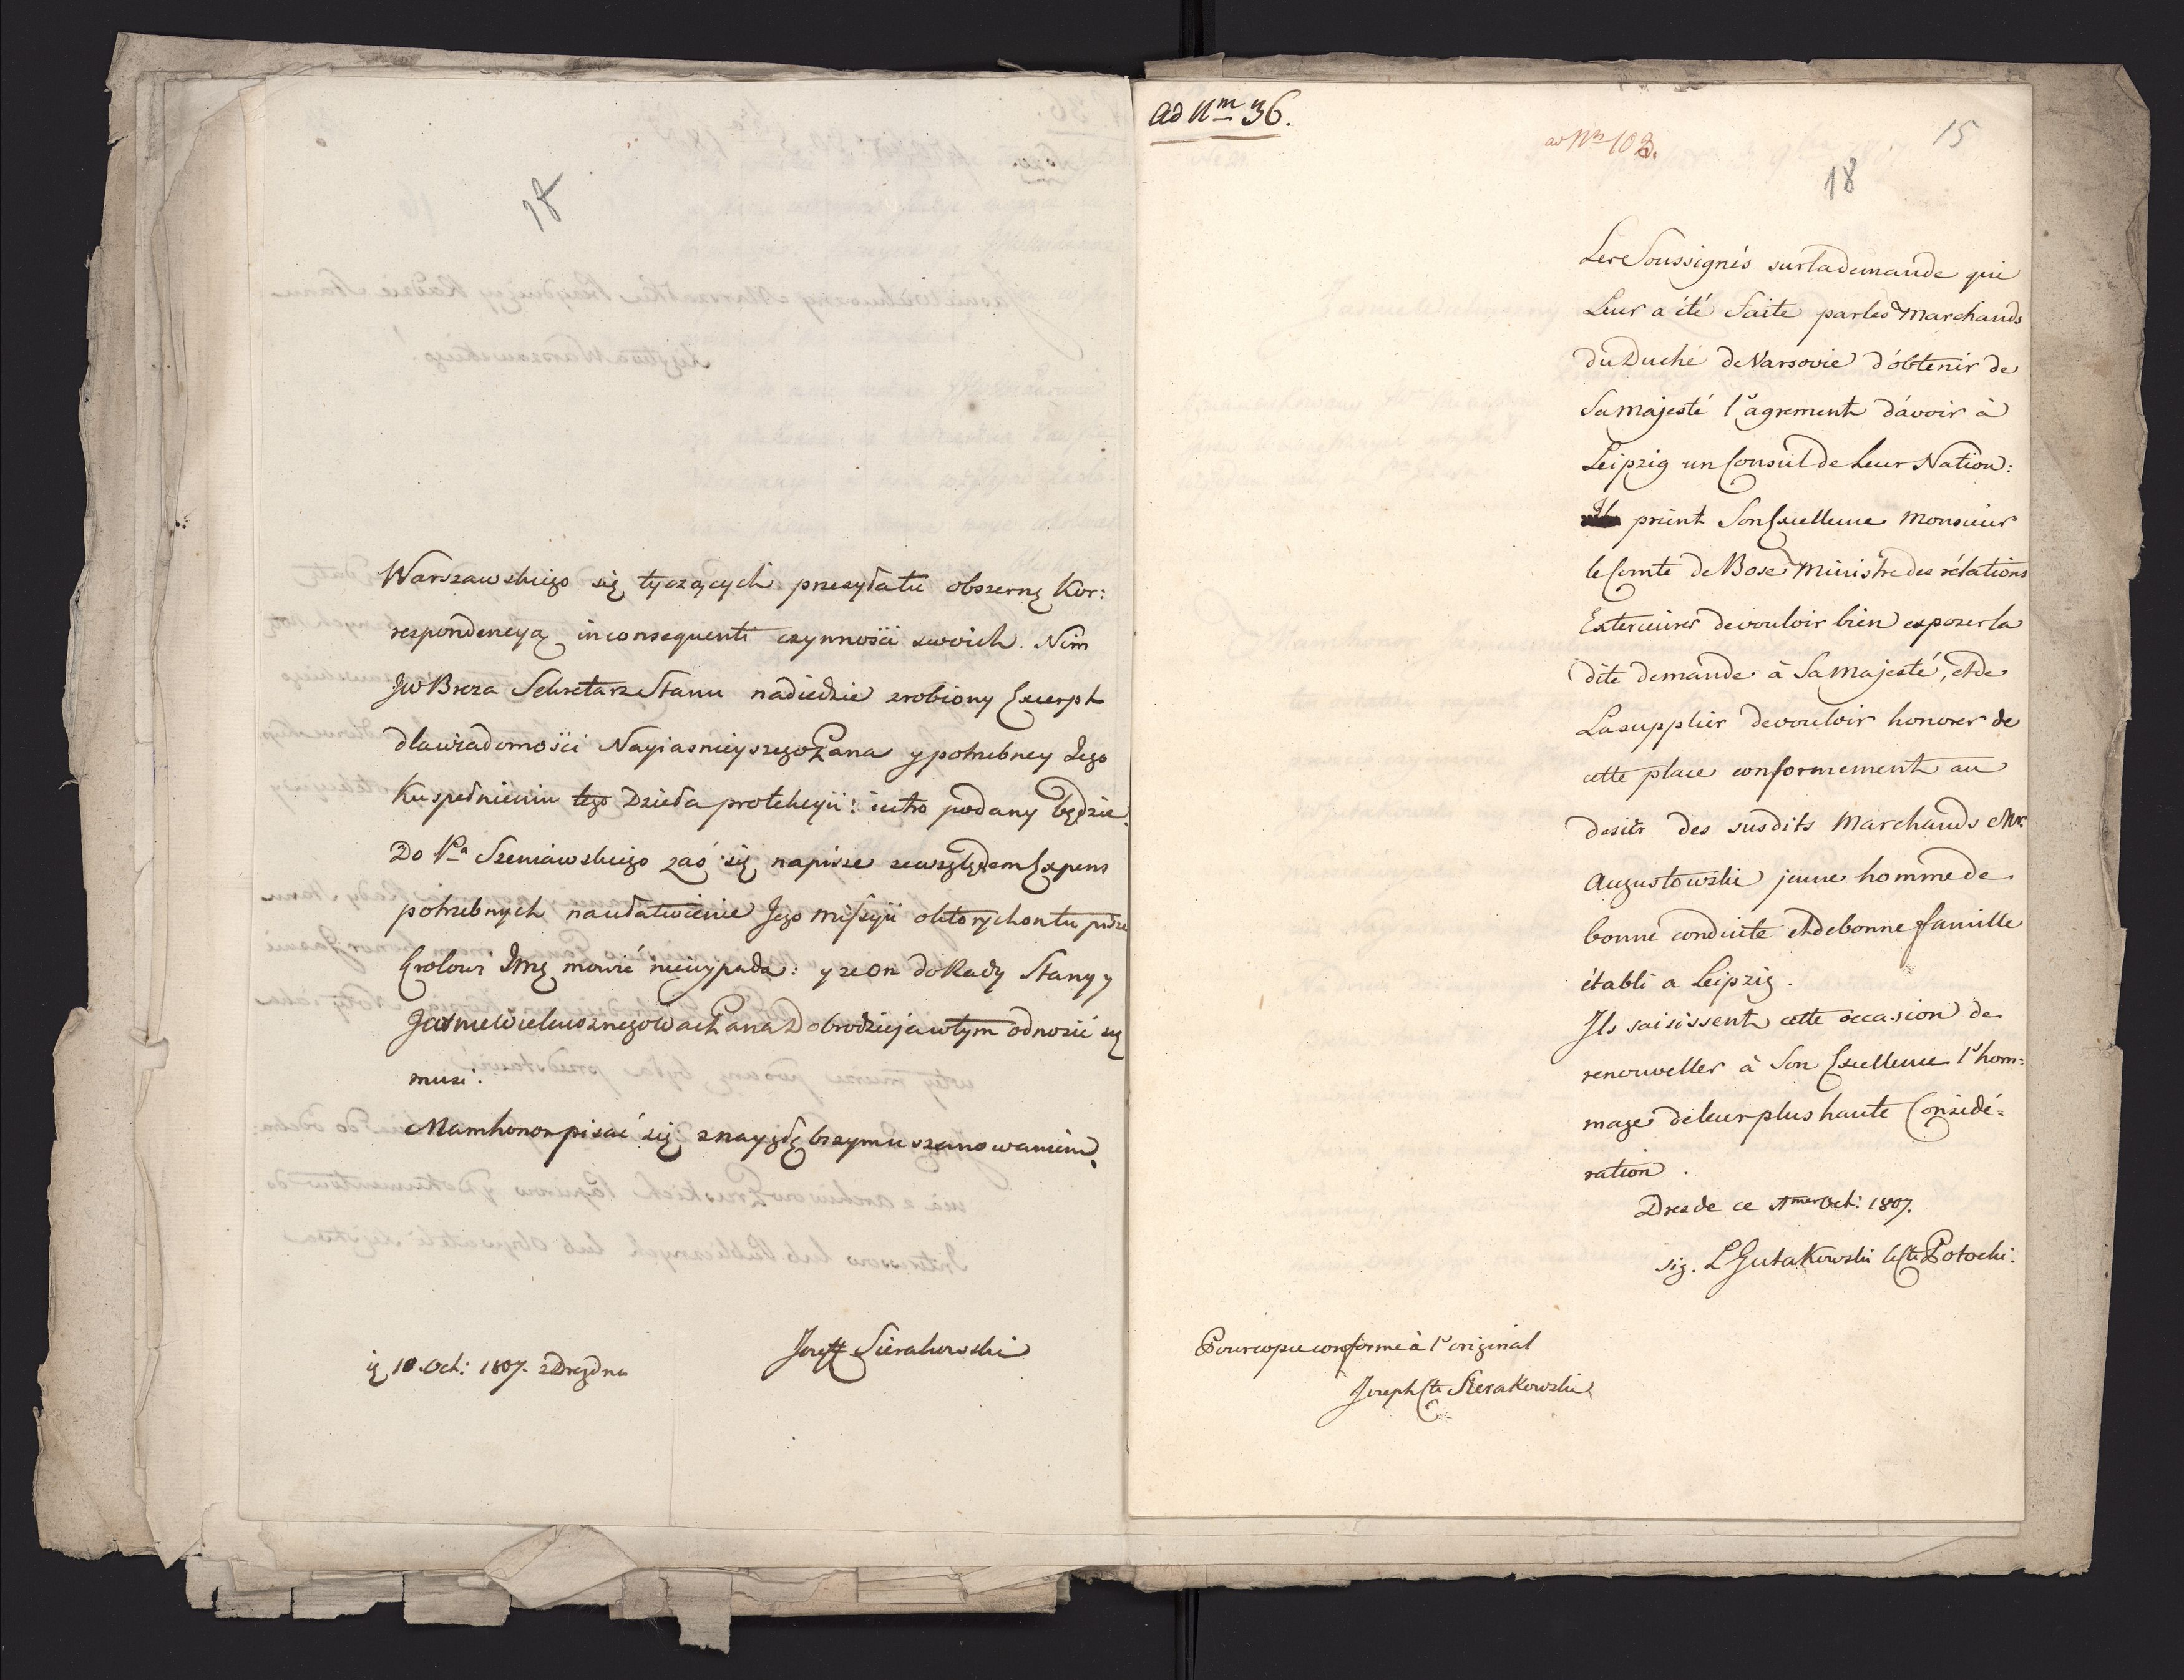 18
Warszawskiego się tyczących przesyłate obszerną Kor:
respondencyą inconsequenti czynności swoich. Nim
JW Breza Sekretarz Stanu nadiedzie zrobiony Excerpt
dla wiadomości Nayiasnieyszego Pana y potrzebney Jego
Ku spełnieniu tego Dzieła protekcyi: iutro podany będzie.
Do Pa Szeniawskiego zaś się napisze ze względem Expens
potrzebnych na ułatwienie Jego missyi o ktorych on tu pisze
Krolowi Jmę mowić niewypada: y ze on do Rady Stanu y
Jasnie Wielmoznego WacPana Dobrodzieja w tym odnosić się
musi.
Mam honor pisać się z nayygłębszym uszanowaniem.
Joseff Sierakowski
10 Oct: 1807. z Drezdna
ad Nm 36.
ad Nm 103.
15
18
Les Soussignés sur la demande qui
Leur a été faite par les Marchands
du Duché de Varsovie d'obtenir de
Sa Majesté l'agrement d'avoir à
Leipzig un Consul de leur Nation:
prient Son Excellence Monsieur
le Comte de Bose Ministre des rélations
Exterieures de vouloir bien exposer la
dite demande à Sa Majesté, et de
La supplier de vouloir honorer de
cette place conformement au
desir des susdits Marchands Mr.
Augustowski jeune homme de
bonne conduite et de bonne famille
établi a Leipzig.
Ils saisissent cette occasion de
renouveller à Son Excellence l'hom=
mage de leur plus haute Considé=
ration.
Dresde ce Oct: 1807.
sig. L Gutakowski le Cte Potocki.
Pour copie conforme à l'original
Joseph Cte Sierakowski